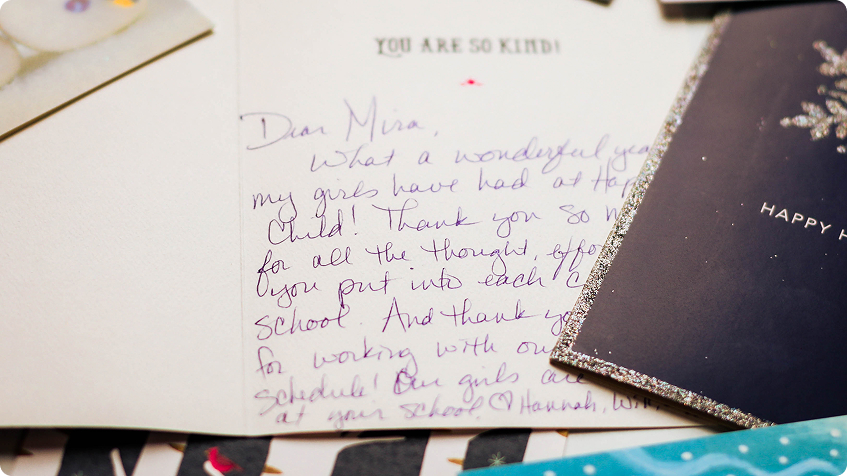 YOU ARE SO KIND!
Dear Mira,
What a wonderful yea
my girls have had at Hap
Child! Thank you so m
for all the thought, effor
you put into each c
school. And thank yo
for working with our
schedule! Our girls are
at your school. ♡ Hannah, Win
HAPPY H